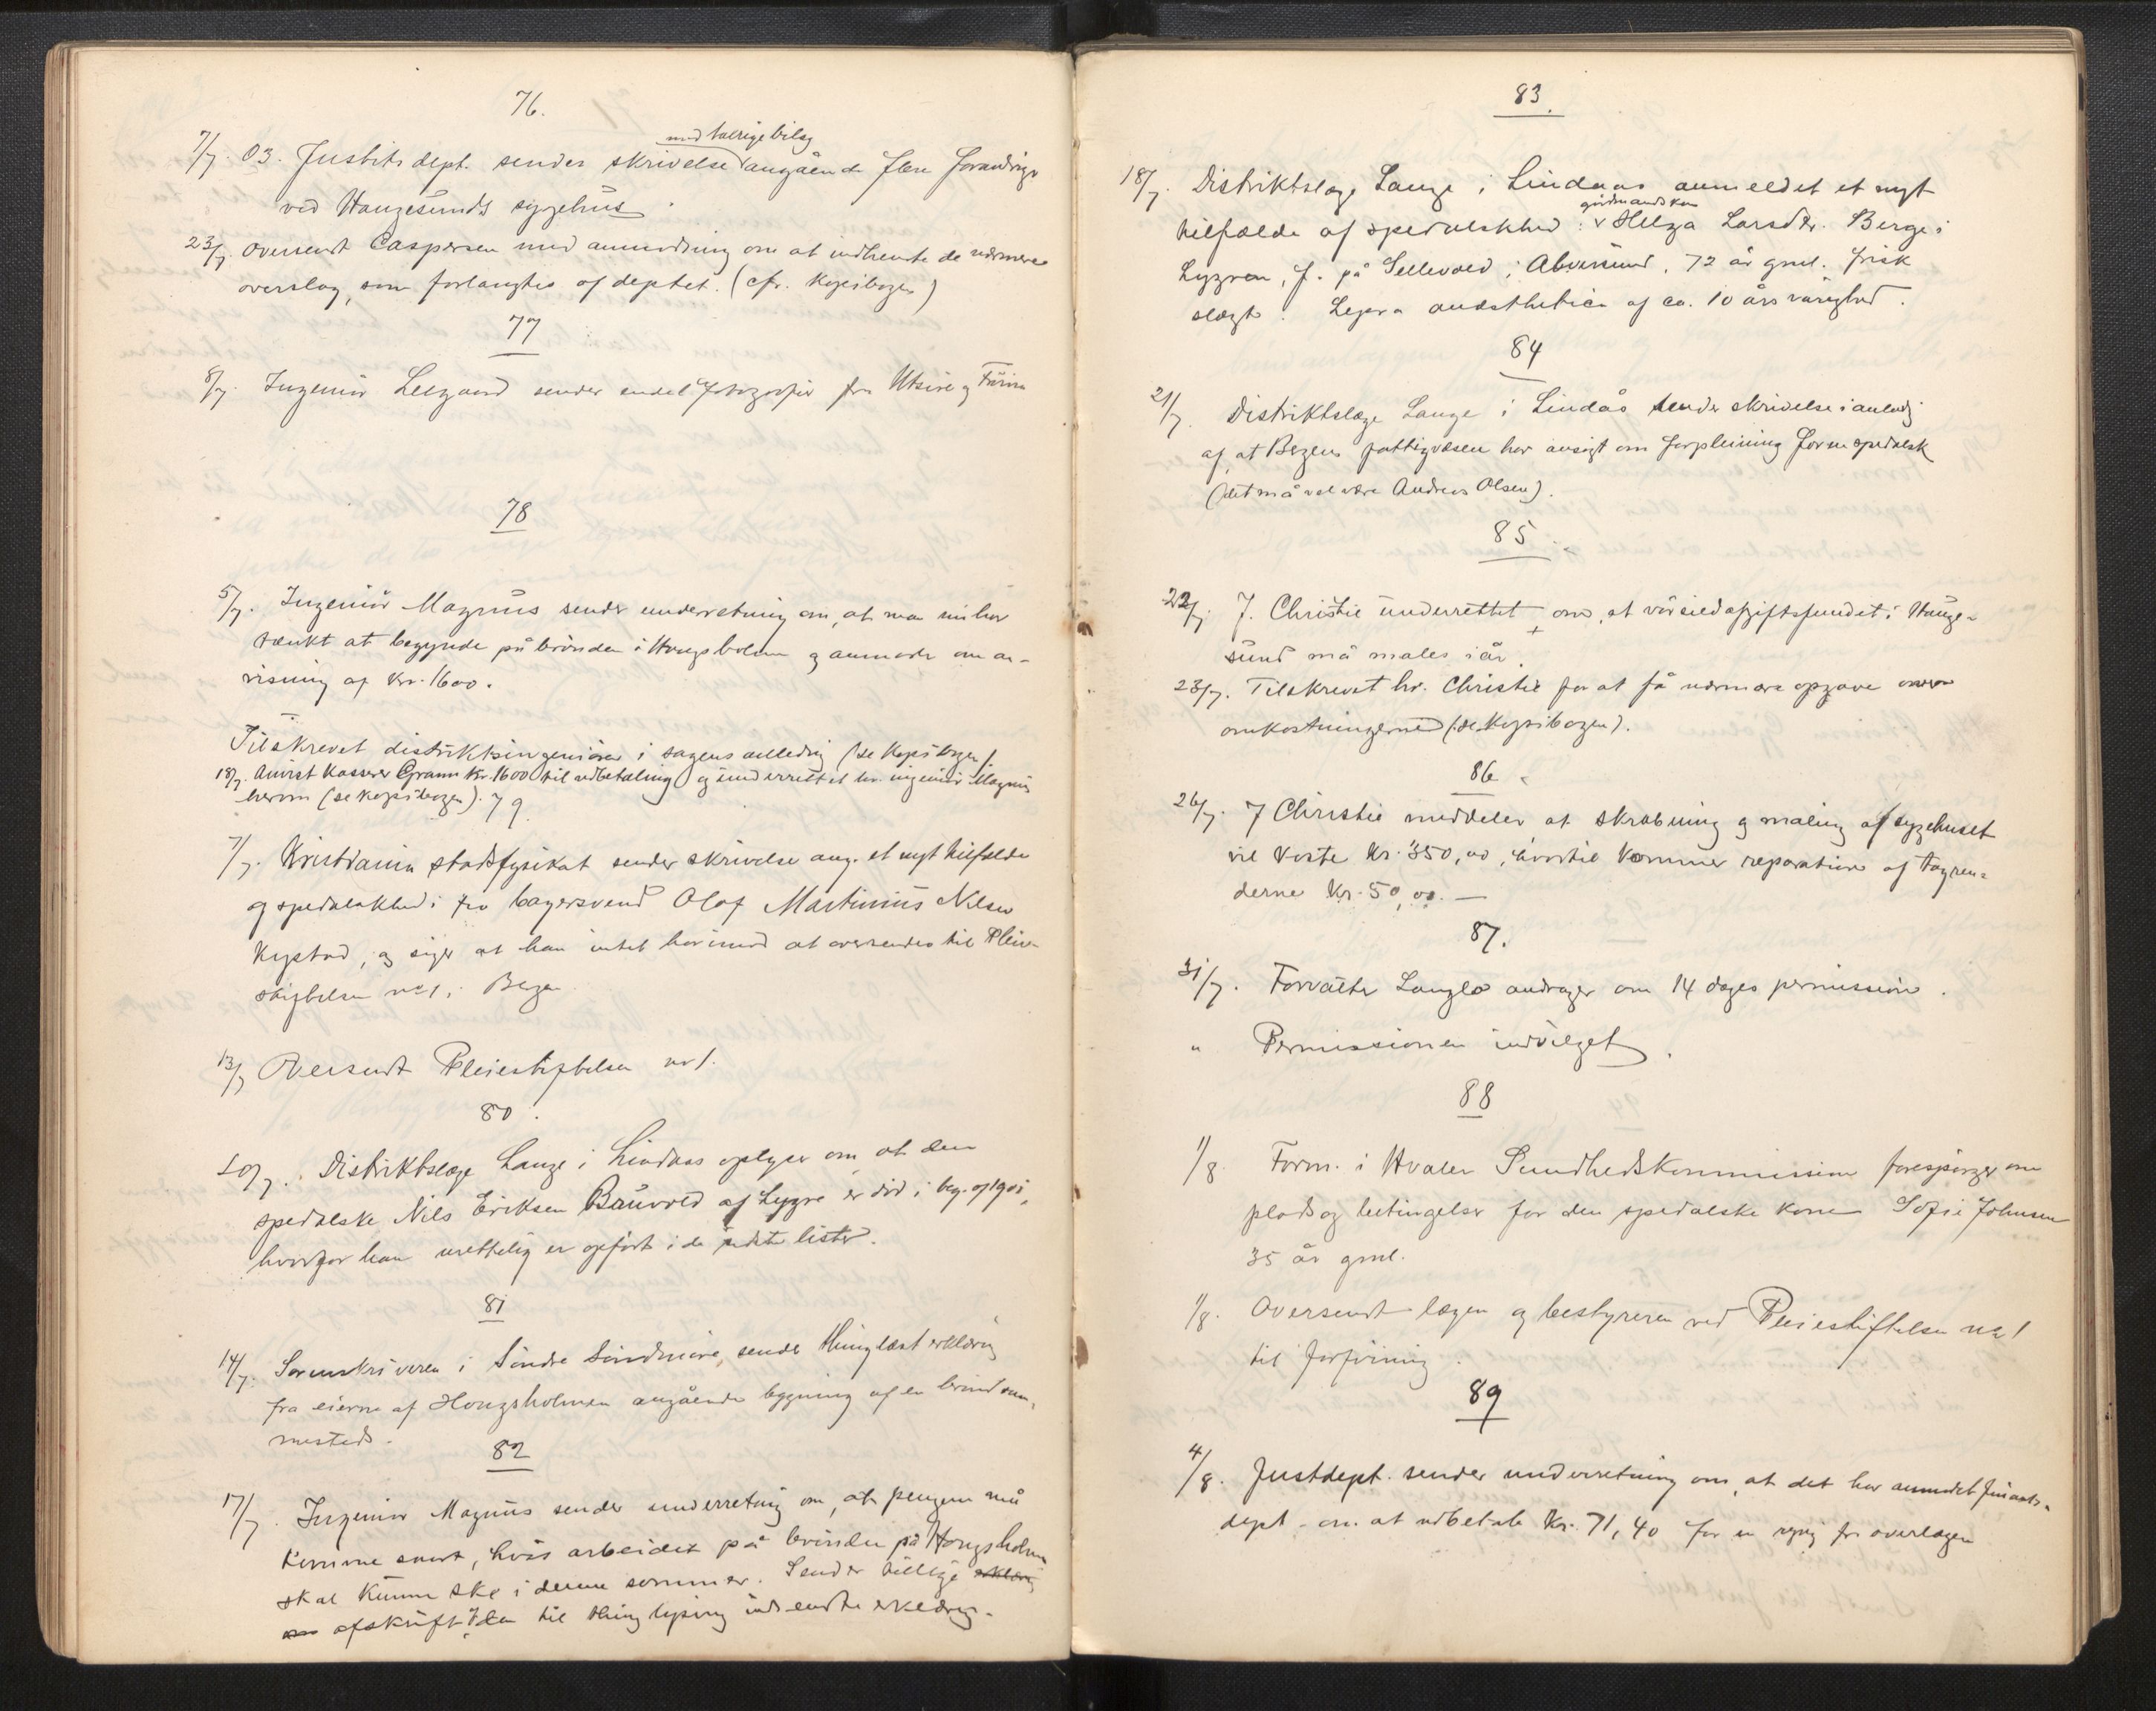 76.
7/7. 03. Justits dept. sender skrivelse med talrige bilag angående flere forandrigr
ved Haugesunds sygehus.
23/7. Oversendt Caspersen med anmodning om at indhente de nærmere
overslag, som forlangtes af deptet. (cfr. Kopibogen)
77
8/7. Ingeniör Leegaard sender endel fotografier fra Utsire og
78
5/7. Ingeniör Magnus sender underretning om, at man nu har
tænkt at begynde på brönden i Hongsholmen og anmoder om an-
visning af Kr. 1600.
Tilskrevet distriktsingeniören i sagens anledng (se Kopibogen).
18/7. Anvist Kasserer Gram Kr. 1600 til udbetaling og underrettet hr. ingeniör Magnus
herom (se kopibogen).
79
7/7. Kristiania stadsfysikat sender skrivelse ang. et nyt tilfælde
af spedalskhed: bagersvend Olaf Martinius Nilsen
Kystad, og siger at han intet har imod at oversendes til Pleie-
stiftelsen no 1, i Bergen
13/7 Oversendt Pleiestiftelsen no 1.
80.
10/7. Distriktslæge Lange i Lindaas oplyser om, at den
spedalske Nils Eriksen Bauvold af Lygre er död i beg. af 1901,
hvorfor han urettelig er opfört i de sidste lister.
81
14/7. Sorenskriveren i Söndre Söndmöre, sender thinglæst erklæring
fra eierne af Hongsholmen angående bygning af en brönd sam-
mesteds.
82
17/7. Ingeniör Magnus sender underretng om, at pengene må
komme snart, hvis arbeidet på brönden på Hongsholmen
skal kunne ske i denne sommer. Sender tillige erklærig
afskrift af den til thinglysing indsendte erklærng.
83.
18/7. Distriktslæge Lange i Lindaas anmeldet et nyt
tilfælde af spedalskhed: gårdmandskone Helga Larsdtr. Berge i
Lygren, f. på Sellevold i Alversund, 72 år gml. frisk
slægt. Lepra anæsthetica af ca. 10 års varighed.
84
21/7. Distriktslæge Lange i Lindås sender skrivelse i anledg
af, at Bergens fattigvæsen har ansøgt om forpleining for en spedalsk
(det må vel være Andreas Olsen).
85.
22/7. J. Christie underrettet om, at vårsildafgiftsfondet i Hauge-
sund må males i år.
23/7. Tilskrevet hr. Christie for at få nærmere opgave over
omkostningerne (se Kopibogen).
86
26/7. J Christie meddeler, at skrabning og maling af sygehuset
vil koste Kr. 350,00, hvortil kommer reparation af tagren-
derne Kr. 50,00. —
87.
31/7. Forvalter Langlo andrager om 14 dages permission.
" Permissionen indvilget.
88
1/8. Form. i Hvaler Sundhedskommission forespörger om
plads og betingelser for den spedalske kone Sofie Johnsen
35 år gml.
1/8. Oversendt lægen og bestyreren ved Pleiestiftelsen no 1
til forföining.
89
4/8. Justdept. sender underretning om, at det har anmodet finants-
dept. om at udbetale Kr. 71,40 for en regng fra overlægen